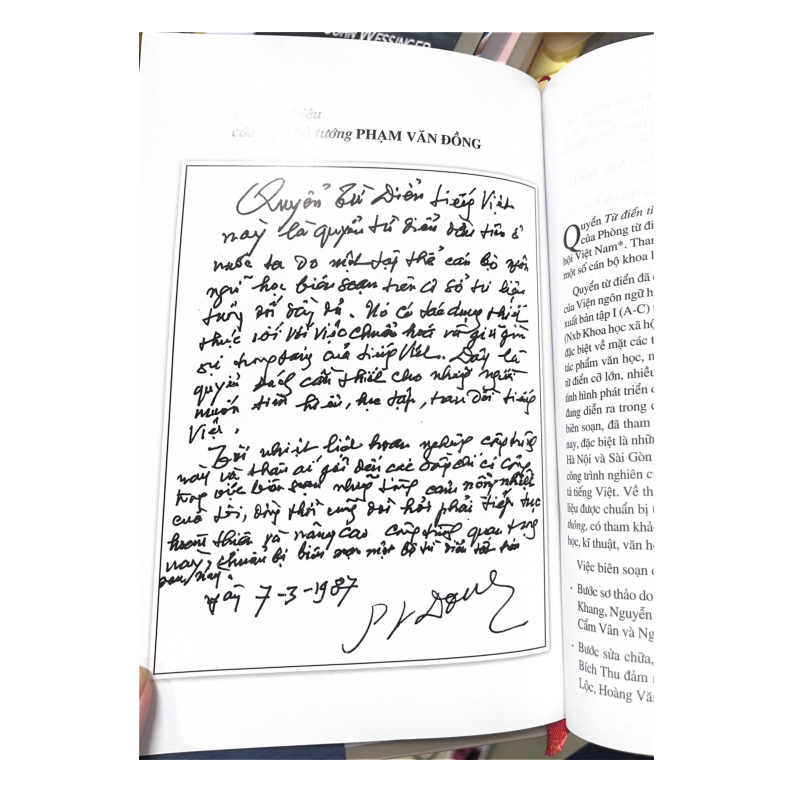 JOHN WESSINGER
của tướng PHẠM VĂN ĐỒNG
Quyển Từ Điển tiếng Việt
này là quyển từ điển đầu tiên ở
nước ta do một tập thể cán bộ ngôn
ngữ học biên soạn trên cơ sở tư liệu
tương đối đầy đủ. Nó có tác dụng thiết
thực đối với việc chuẩn hoá và giữ gìn
sự trong sáng của tiếng Việt. Đây là
quyển sách cần thiết cho những người
muốn tìm hiểu, học tập, trau dồi tiếng
Việt.
Tôi nhiệt liệt hoan nghênh công trình
này và thân ái gửi đến các đồng chí có công
trong việc biên soạn những tình cảm nồng nhiệt
của tôi, đồng thời cũng đòi hỏi phải tiếp tục
hoàn thiện và nâng cao công trình quan trọng
này, chuẩn bị biên soạn một bộ từ điển tốt hơn
sau này.
Ngày 7-3-1987
PVDong
Quyển Từ điển ti
của Phòng từ đi
hội Việt Nam*. Than
một số cán bộ khoa h
Quyển từ điển đã
của Viện ngôn ngữ h
xuất bản tập I (A-C)
(Nxb Khoa học xã hộ
đặc biệt về mặt các t
tác phẩm văn học, n
từ điển cỡ lớn, nhiều
tình hình phát triển c
đang diễn ra trong c
biên soạn, đã tham
nay, đặc biệt là nhữn
Hà Nội và Sài Gòn
công trình nghiên cứ
tả tiếng Việt. Về th
liệu được chuẩn bị t
thông, có tham khả
học, kĩ thuật, văn h
Việc biên soạn c
- Bước sơ thảo do
Khang, Nguyễn
Cẩm Vân và Ng
- Bước sửa chữa,
Bích Thu đảm n
Lộc, Hoàng Vă